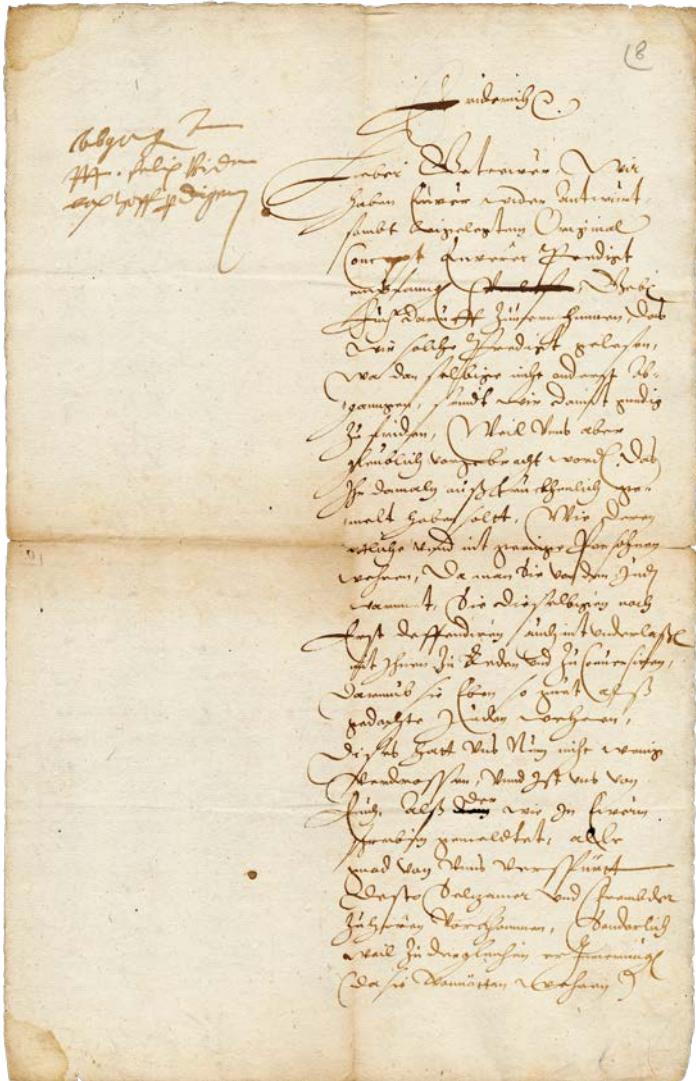 8
Abgang
M. Felix Bidem
bach Hoffpredigern
Friderich ec.
Lieber Getrewer, Wir
haben Ewer wider Antwurt
sambt beigelegtem Original
Concept Ewerer Predigt
empfang
Euch darauff Zuuernehmmen, das
wir solche Predigt gelesen,
wa dan selbige nicht anderst ab-
gangen, seindt wir damit gnedig
Zu friden, Weil Vns aber
glaublich vorgebracht word. das
Ihr damaln außtruckhenlich ge-
melt haben solt, Wie deren
etliche vnd nit geringe Personen
wehren, Da man Sie vor den Juden
warnnet, Sie dieselbigen noch
Erst deffendiren auch nit vnderlaßen
mit Ihnen Zu Reden vnd Zu Conuersiren,
Darumb sie Eben so guet alß
gedachte Juden wehren,
Dises hatt Vns Nun nicht wenig
Verdrossen, Vnnd Ist vns von
Euch, alß der wie In Ewerm
schreiben gemeldtet, alle
gnad von Vnns verspürt
Desto Selzamer vnd frembder
Zuhören Vorkhommen, Sonderlich
weil Zu dergleichen erJnnerung
(da sie Vonnötten wehren)